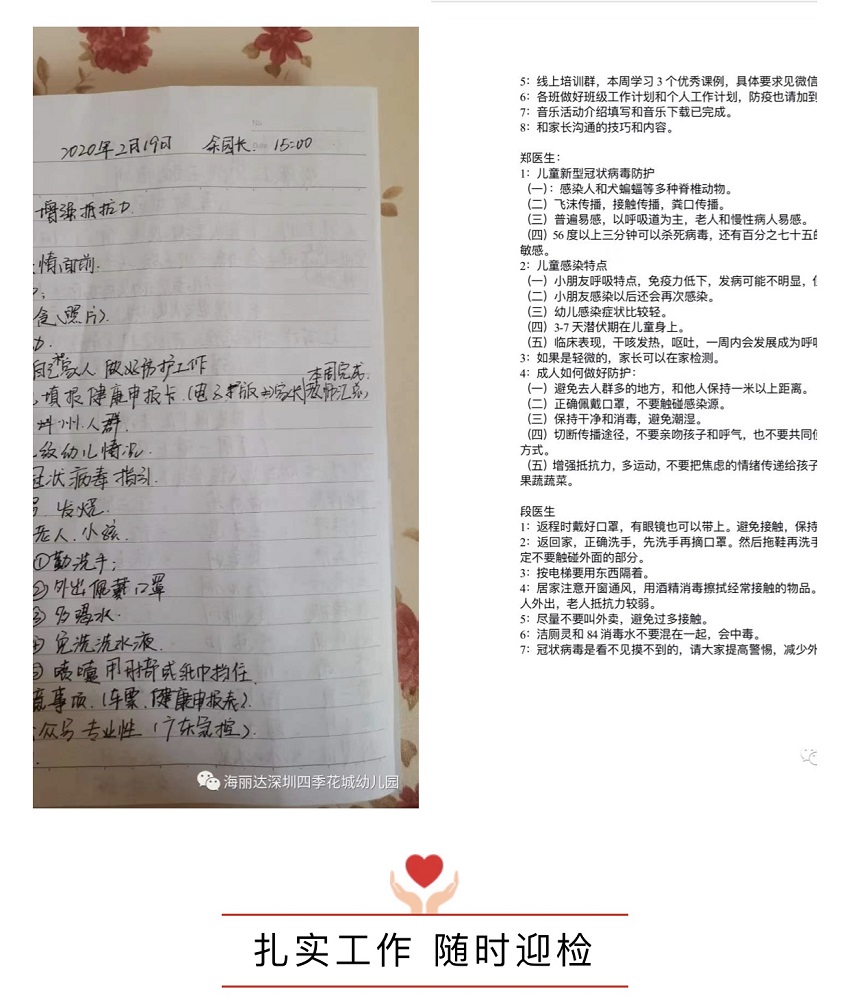 2020年2月19日 余园长: 15:00
增强抵抗力
情面前.
食(照片).
家人 做好防护工作
本周完成.
填报健康申报卡.(电子版
人群.
级幼儿情况.
冠状病毒指引.
发烧.
老人.小孩.
①勤洗手;
②外出佩戴口罩
③多喝水.
免洗洗水液.
喷嚏用肘部或纸巾挡住.
事项.(车票.健康申报表).
众号专业性(广东
海丽达深圳四季花城幼儿园
5：线上培训群，本周学习3个优秀课例，具体要求见微信
6：各班做好班级工作计划和个人工作计划，防疫也请加到
7：音乐活动介绍填写和音乐下载已完成。
8：和家长沟通的技巧和内容。
郑医生：
1：儿童新型冠状病毒防护
（一）：感染人和犬蝙蝠等多种脊椎动物。
（二）飞沫传播，接触传播，粪口传播。
（三）普遍易感，以呼吸道为主，老人和慢性病人易感。
（四）56度以上三分钟可以杀死病毒，还有百分之七十五
敏感。
2：儿童感染特点
（一）小朋友呼吸特点，免疫力低下，发病可能不明显，
（二）小朋友感染以后还会再次感染。
（三）幼儿感染症状比较轻。
（四）3-7天潜伏期在儿童身上。
（五）临床表现，干咳发热，呕吐，一周内会发展成为呼
3：如果是轻微的，家长可以在家检测。
4：成人如何做好防护：
（一）避免去人群多的地方，和他人保持一米以上距离。
（二）正确佩戴口罩，不要触碰感染源。
（三）保持干净和消毒，避免潮湿。
（四）切断传播途径，不要亲吻孩子和呼气，也不要共同
方式。
（五）增强抵抗力，多运动，不要把焦虑的情绪传递给孩子
果蔬蔬菜。
段医生
1：返程时戴好口罩，有眼镜也可以带上。避免接触，保持
2：返回家，正确洗手，先洗手再摘口罩。然后拖鞋再洗手
定不要触碰外面的部分。
3：按电梯要用东西隔着。
4：居家注意开窗通风，用酒精消毒擦拭经常接触的物品。
人外出，老人抵抗力较弱。
5：尽量不要叫外卖，避免过多接触。
6：洁厕灵和84消毒水不要混在一起，会中毒。
7：冠状病毒是看不见摸不到的，请大家提高警惕，减少外
扎实工作 随时迎检